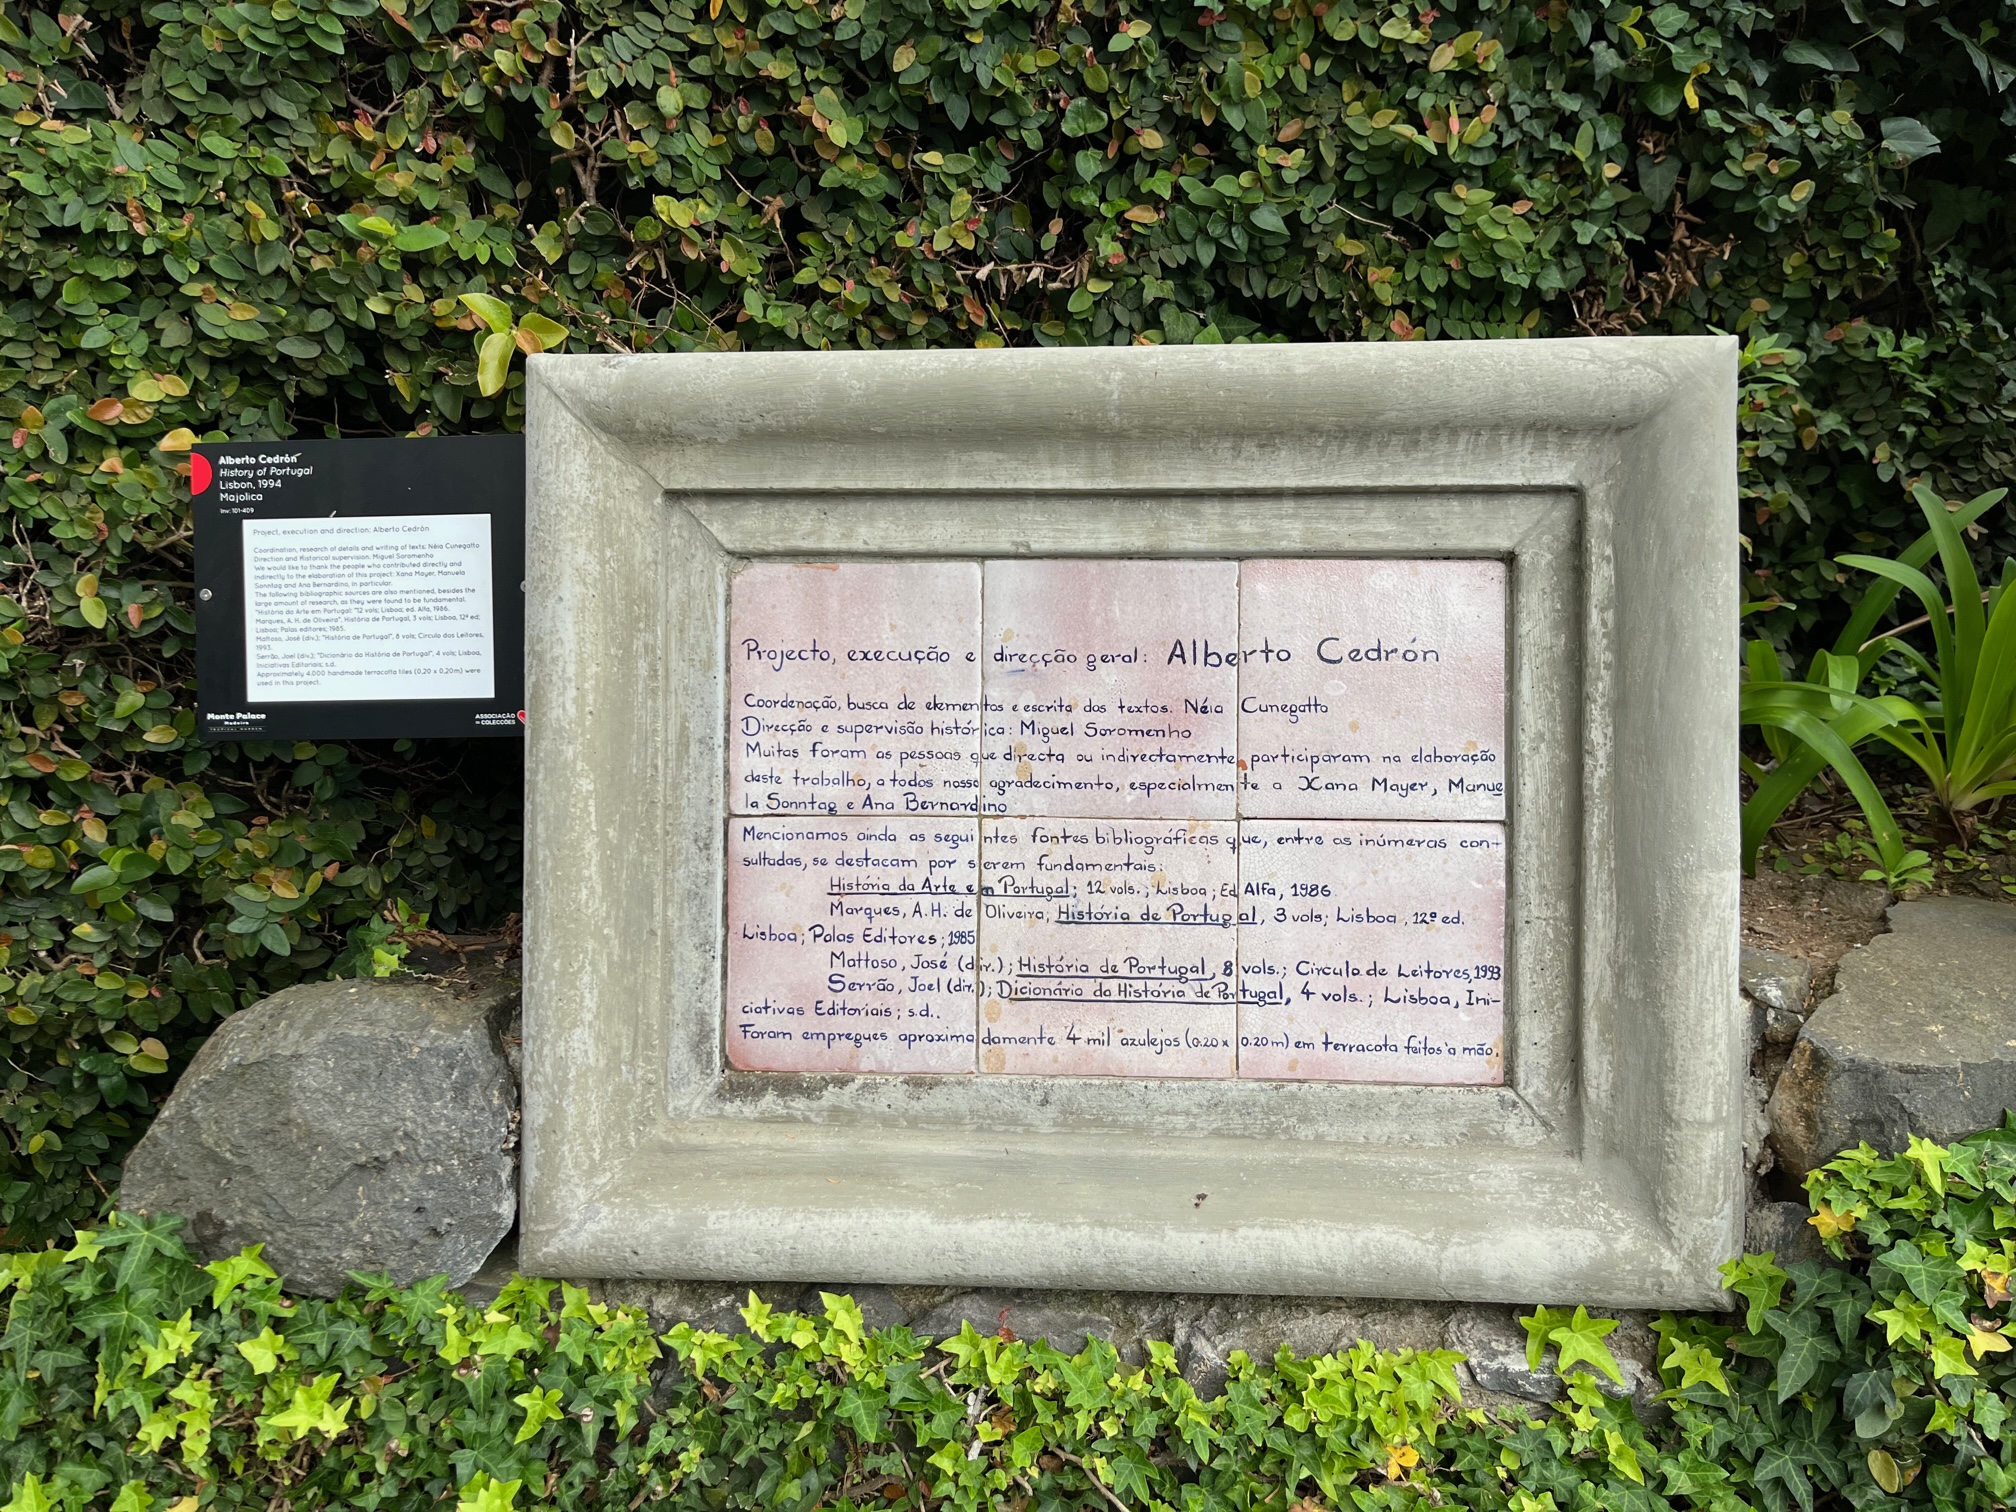 Alberto Cedrón
History of Portugal
Lisbon, 1994
Majolica
Inv: 101-409
Project, execution and direction: Alberto Cedrón
Coordination, research of details and writing of texts: Néia Cunegatto
Direction and Historical supervision: Miguel Soromenho
We would like to thank the people who contributed directly and
indirectly to the elaboration of this project: Xana Mayer, Manuela
Sonntag and Ana Bernardino, in particular.
The following bibliographic sources are also mentioned, besides the
large amount of research, as they were found to be fundamental.
"História da Arte em Portugal; "12 vols; Lisboa; ed. Alfa, 1986.
Marques, A. H. de Oliveira", História de Portugal, 3 vols; Lisboa, 12ª ed;
Lisboa; Palas editores; 1985.
Mattoso, José (div.); "História de Portugal", 8 vols; Circulo dos Leitores,
1993.
Serrão, Joel (div.); "Dicionário da História de Portugal", 4 vols; Lisboa,
Iniciativas Editoriais; s.d.
Approximately 4.000 handmade terracotta tiles (0,20 x 0,20m) were
used in this project.
Monte Palace
Madeira
TROPICAL GARDEN
ASSOCIAÇÃO
DE COLECÇÕES
Projecto, execução e direcção geral: Alberto Cedrón
Coordenação, busca de elementos e escrita dos textos. Néia Cunegatto
Direcção e supervisão histórica: Miguel Soromenho
Muitas foram as pessoas que directa ou indirectamente participaram na elaboração
deste trabalho, a todos nosso agradecimento, especialmente a Xana Mayer, Manue
la Sonntag e Ana Bernardino
Mencionamos ainda as seguintes fontes bibliográficas que, entre as inúmeras con-
sultadas, se destacam por serem fundamentais:
História da Arte em Portugal; 12 vols.; Lisboa; Ed Alfa, 1986.
Marques, A.H. de Oliveira; História de Portugal, 3 vols; Lisboa, 12ª ed.
Lisboa; Palas Editores; 1985
Mattoso, José (dir.); História de Portugal, 8 vols.; Circulo de Leitores, 1993
Serrão, Joel (dir.); Dicionário da História de Portugal, 4 vols.; Lisboa, Ini-
ciativas Editoriais; s.d..
Foram empregues aproximadamente 4 mil azulejos (0.20 x 0.20 m) em terracota feitos à mão.